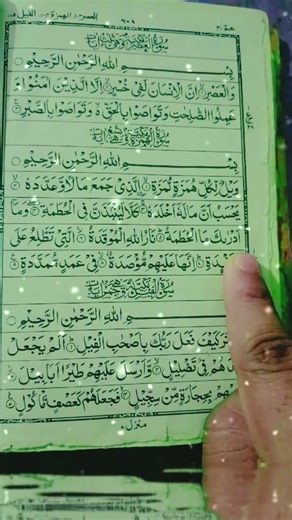 العصر ١٠٣ الهمزة ١٠٤ الفيل ١٠٥
٦٠٩
عم ٣٠
بِسْمِ اللهِ الرَّحْمٰنِ الرَّحِيْمِ
وَالْعَصْرِ اِنَّ الْاِنْسَانَ لَفِيْ خُسْرٍ اِلَّا الَّذِيْنَ اٰمَنُوْا وَ
عَمِلُوا الصّٰلِحٰتِ وَتَوَاصَوْا بِالْحَقِّ وَتَوَاصَوْا بِالصَّبْرِ
بِسْمِ اللهِ الرَّحْمٰنِ الرَّحِيْمِ
وَيْلٌ لِّكُلِّ هُمَزَةٍ لُّمَزَةٍ الَّذِيْ جَمَعَ مَالًا وَّعَدَّدَهٗ
يَحْسَبُ اَنَّ مَالَهٗ اَخْلَدَهٗ كَلَّا لَيُنْۢبَذَنَّ فِي الْحُطَمَةِ وَمَا
اَدْرٰىكَ مَا الْحُطَمَةُ نَارُ اللهِ الْمُوْقَدَةُ الَّتِيْ تَطَّلِعُ عَلَى
اِنَّهَا عَلَيْهِمْ مُّؤْصَدَةٌ فِيْ عَمَدٍ مُّمَدَّدَةٍ
بِسْمِ اللهِ الرَّحْمٰنِ الرَّحِيْمِ
كَيْفَ فَعَلَ رَبُّكَ بِاَصْحٰبِ الْفِيْلِ اَلَمْ يَجْعَلْ
فِيْ تَضْلِيْلٍ وَّاَرْسَلَ عَلَيْهِمْ طَيْرًا اَبَابِيْلَ
بِحِجَارَةٍ مِّنْ سِجِّيْلٍ فَجَعَلَهُمْ كَعَصْفٍ مَّاْكُوْلٍ
منزل